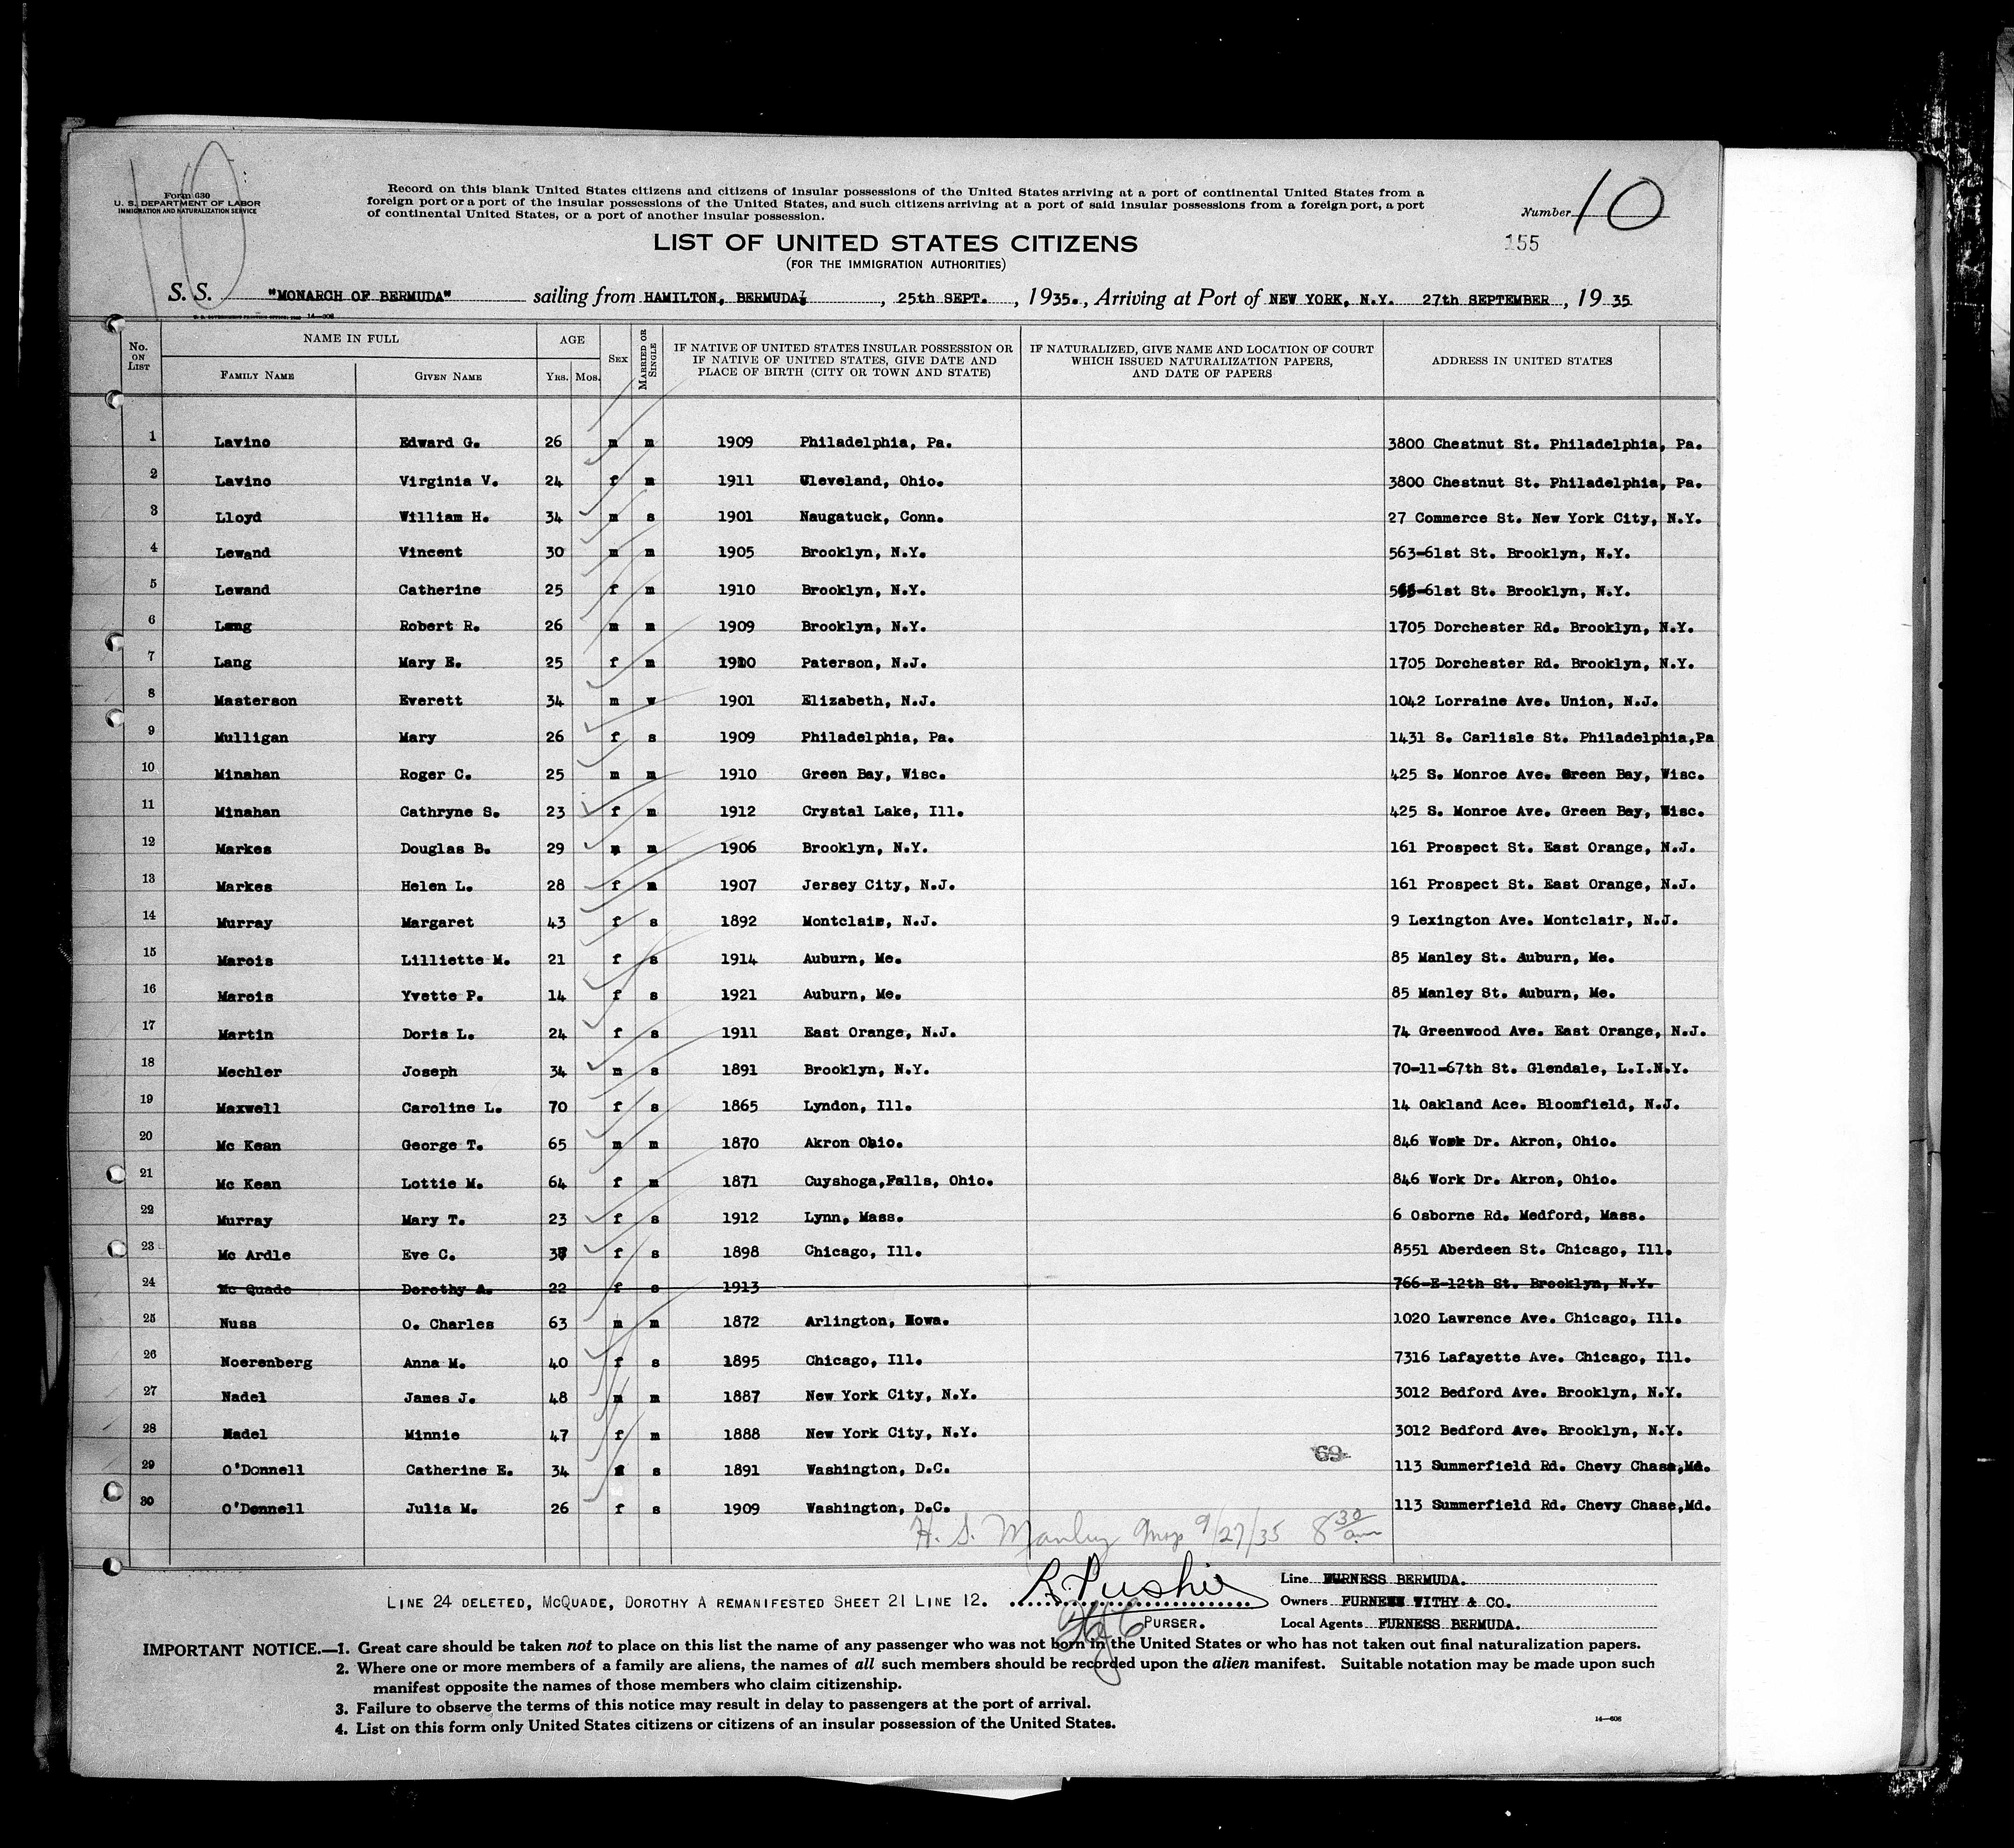 Form 630
U. S. DEPARTMENT OF LABOR
IMMIGRATION AND NATURALIZATION SERVICE
10
Record on this blank United States citizens and citizens of insular possessions of the United States arriving at a port of continental United States from a
foreign port or a port of the insular possessions of the United States, and such citizens arriving at a port of said insular possessions from a foreign port, a port
of continental United States, or a port of another insular possession.
Number 10
155
LIST OF UNITED STATES CITIZENS
(FOR THE IMMIGRATION AUTHORITIES)
S. S. "MONARCH OF BERMUDA" sailing from HAMILTON, BERMUDA, 25th SEPT. , 1935. , Arriving at Port of NEW YORK, N.Y. 27th SEPTEMBER , 19 35
No. ON LIST NAME IN FULL FAMILY NAME GIVEN NAME AGE YRS. MOS. SEX MARRIED OR SINGLE IF NATIVE OF UNITED STATES INSULAR POSSESSION OR IF NATIVE OF UNITED STATES, GIVE DATE AND PLACE OF BIRTH (CITY OR TOWN AND STATE) IF NATURALIZED, GIVE NAME AND LOCATION OF COURT WHICH ISSUED NATURALIZATION PAPERS, AND DATE OF PAPERS ADDRESS IN UNITED STATES
1 Lavino Edward G. 26 m m 1909 Philadelphia, Pa. 3800 Chestnut St. Philadelphia, Pa.
2 Lavino Virginia V. 24 f m 1911 Cleveland, Ohio. 3800 Chestnut St. Philadelphia, Pa.
3 Lloyd William H. 34 m s 1901 Naugatuck, Conn. 27 Commerce St. New York City, N.Y.
4 Lewand Vincent 30 m m 1905 Brooklyn, N.Y. 563-61st St. Brooklyn, N.Y.
5 Lewand Catherine 25 f m 1910 Brooklyn, N.Y. 563-61st St. Brooklyn, N.Y.
6 Lang Robert R. 26 m m 1909 Brooklyn, N.Y. 1705 Dorchester Rd. Brooklyn, N.Y.
7 Lang Mary E. 25 f m 1910 Paterson, N.J. 1705 Dorchester Rd. Brooklyn, N.Y.
8 Masterson Everett 34 m w 1901 Elizabeth, N.J. 1042 Lorraine Ave. Union, N.J.
9 Mulligan Mary 26 f s 1909 Philadelphia, Pa. 1431 S. Carlisle St. Philadelphia,Pa
10 Minahan Roger C. 25 m m 1910 Green Bay, Wisc. 425 S. Monroe Ave. Green Bay, Wisc.
11 Minahan Cathryne S. 23 f m 1912 Crystal Lake, Ill. 425 S. Monroe Ave. Green Bay, Wisc.
12 Markes Douglas B. 29 m m 1906 Brooklyn, N.Y. 161 Prospect St. East Orange, N.J.
13 Markes Helen L. 28 f m 1907 Jersey City, N.J. 161 Prospect St. East Orange, N.J.
14 Murray Margaret 43 f s 1892 Montclair, N.J. 9 Lexington Ave. Montclair, N.J.
15 Marois Lilliette M. 21 f s 1914 Auburn, Me. 85 Manley St. Auburn, Me.
16 Marois Yvette P. 14 f s 1921 Auburn, Me. 85 Manley St. Auburn, Me.
17 Martin Doris L. 24 f s 1911 East Orange, N.J. 74 Greenwood Ave. East Orange, N.J.
18 Mechler Joseph 34 m s 1891 Brooklyn, N.Y. 70-11-67th St. Glendale, L.I.N.Y.
19 Maxwell Caroline L. 70 f s 1865 Lyndon, Ill. 14 Oakland Ace. Bloomfield, N.J.
20 Mc Kean George T. 65 m m 1870 Akron Ohio. 846 Work Dr. Akron, Ohio.
21 Mc Kean Lottie M. 64 f m 1871 Cuyshoga,Falls, Ohio. 846 Work Dr. Akron, Ohio.
22 Murray Mary T. 23 f s 1912 Lynn, Mass. 6 Osborne Rd. Medford, Mass.
23 Mc Ardle Eve C. 37 f s 1898 Chicago, Ill. 8551 Aberdeen St. Chicago, Ill.
24 Mc Quade Dorothy A. 22 f s 1913 766-E-12th St. Brooklyn, N.Y.
25 Nuss O. Charles 63 m m 1872 Arlington, Iowa. 1020 Lawrence Ave. Chicago, Ill.
26 Noerenberg Anna M. 40 f s 1895 Chicago, Ill. 7316 Lafayette Ave. Chicago, Ill.
27 Nadel James J. 48 m m 1887 New York City, N.Y. 3012 Bedford Ave. Brooklyn, N.Y.
28 Nadel Minnie 47 f m 1888 New York City, N.Y. 3012 Bedford Ave. Brooklyn, N.Y.
69
29 O'Donnell Catherine E. 34 f s 1891 Washington, D.C. 113 Summerfield Rd. Chevy Chase,Md.
30 O'Donnell Julia M. 26 f s 1909 Washington, D.C. 113 Summerfield Rd. Chevy Chase,Md.
H. S. Manley 9/27/35 8 30 am
LINE 24 DELETED, MCQUADE, DOROTHY A REMANIFESTED SHEET 21 LINE 12.
PURSER.
Line FURNESS BERMUDA.
Owners FURNESS WITHY & CO.
Local Agents FURNESS BERMUDA.
IMPORTANT NOTICE.—1. Great care should be taken not to place on this list the name of any passenger who was not born in the United States or who has not taken out final naturalization papers.
2. Where one or more members of a family are aliens, the names of all such members should be recorded upon the alien manifest. Suitable notation may be made upon such
manifest opposite the names of those members who claim citizenship.
3. Failure to observe the terms of this notice may result in delay to passengers at the port of arrival.
4. List on this form only United States citizens or citizens of an insular possession of the United States.
14—606